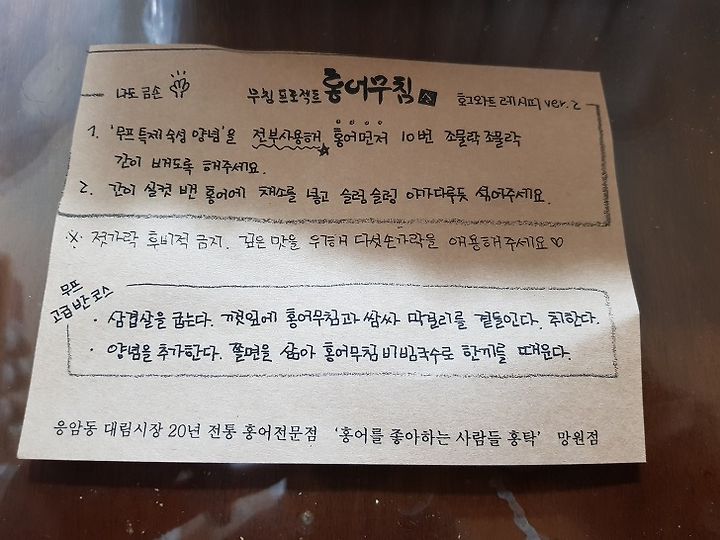 나도 금손 무침 프로젝트 홍어무침 호그와트 레시피 ver.2
1. '무프 특제 숙성 양념'을 전부사용해 홍어먼저 10번 조물락 조물락
간이 배도록 해주세요.
2. 간이 실컷 밴 홍어에 채소를 넣고 슬렁슬렁 아가다루듯 섞어주세요.
※ 젓가락 후비적 금지. 깊은 맛을 위해 다섯손가락을 애용해주세요♡
무프
고급반 코스
· 삼겹살을 굽는다. 깻잎에 홍어무침과 쌈싸 막걸리를 곁들인다. 취한다.
· 양념을 추가한다. 쫄면을 삶아 홍어무침 비빔국수로 한끼를 때운다.
응암동 대림시장 20년 전통 홍어전문점 '홍어를 좋아하는 사람들 홍탁' 망원점